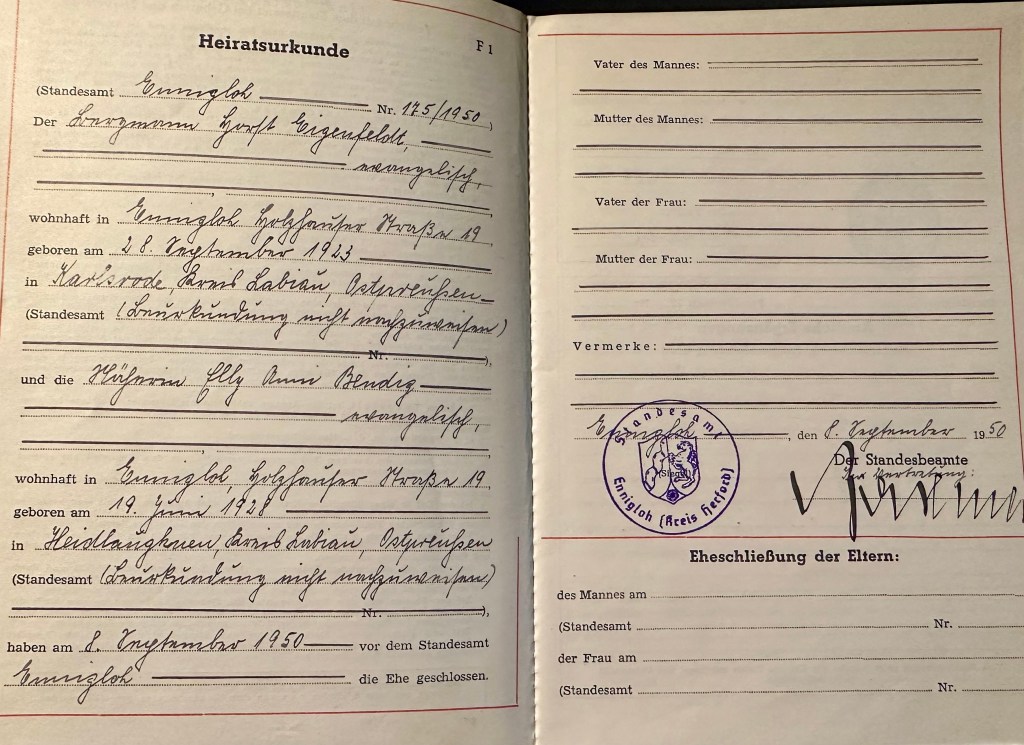 Heiratsurkunde
F 1
(Standesamt Ennigloh Nr. 175/1950)
Der Bergmann Horst Eigenfeldt,
evangelisch,
,
wohnhaft in Ennigloh Holzhauser Straße 19
geboren am 28. September 1923
in Karlsrode, Kreis Labiau, Ostpreußen
(Standesamt (Beurkundung nicht nachzuweisen)
Nr. ),
und die Näherin Elly Anni Bendig
evangelisch,
,
wohnhaft in Ennigloh, Holzhauser Straße 19.
geboren am 19. Juni 1928
in Heidlaugknen, Kreis Labiau, Ostpreußen
(Standesamt (Beurkundung nicht nachzuweisen)
Nr. ),
haben am 8. September 1950 vor dem Standesamt
Ennigloh die Ehe geschlossen.
Vater des Mannes:
Mutter des Mannes:
Vater der Frau:
Mutter der Frau:
Vermerke:
Ennigloh, den 8. September 1950
Standesamt
(Siegel)
Ennigloh (Kreis Herford)
Der Standesbeamte
In Vertretung:
Eheschließung der Eltern:
des Mannes am
(Standesamt Nr.
der Frau am
(Standesamt Nr.